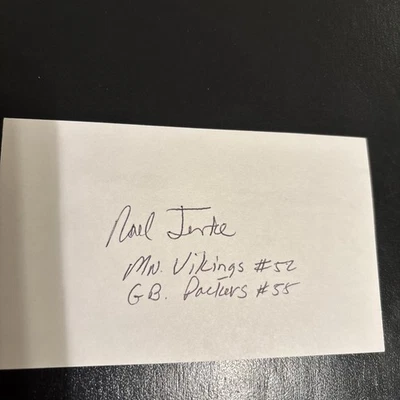 Noel Jenke
MN. Vikings #52
GB. Packers #55